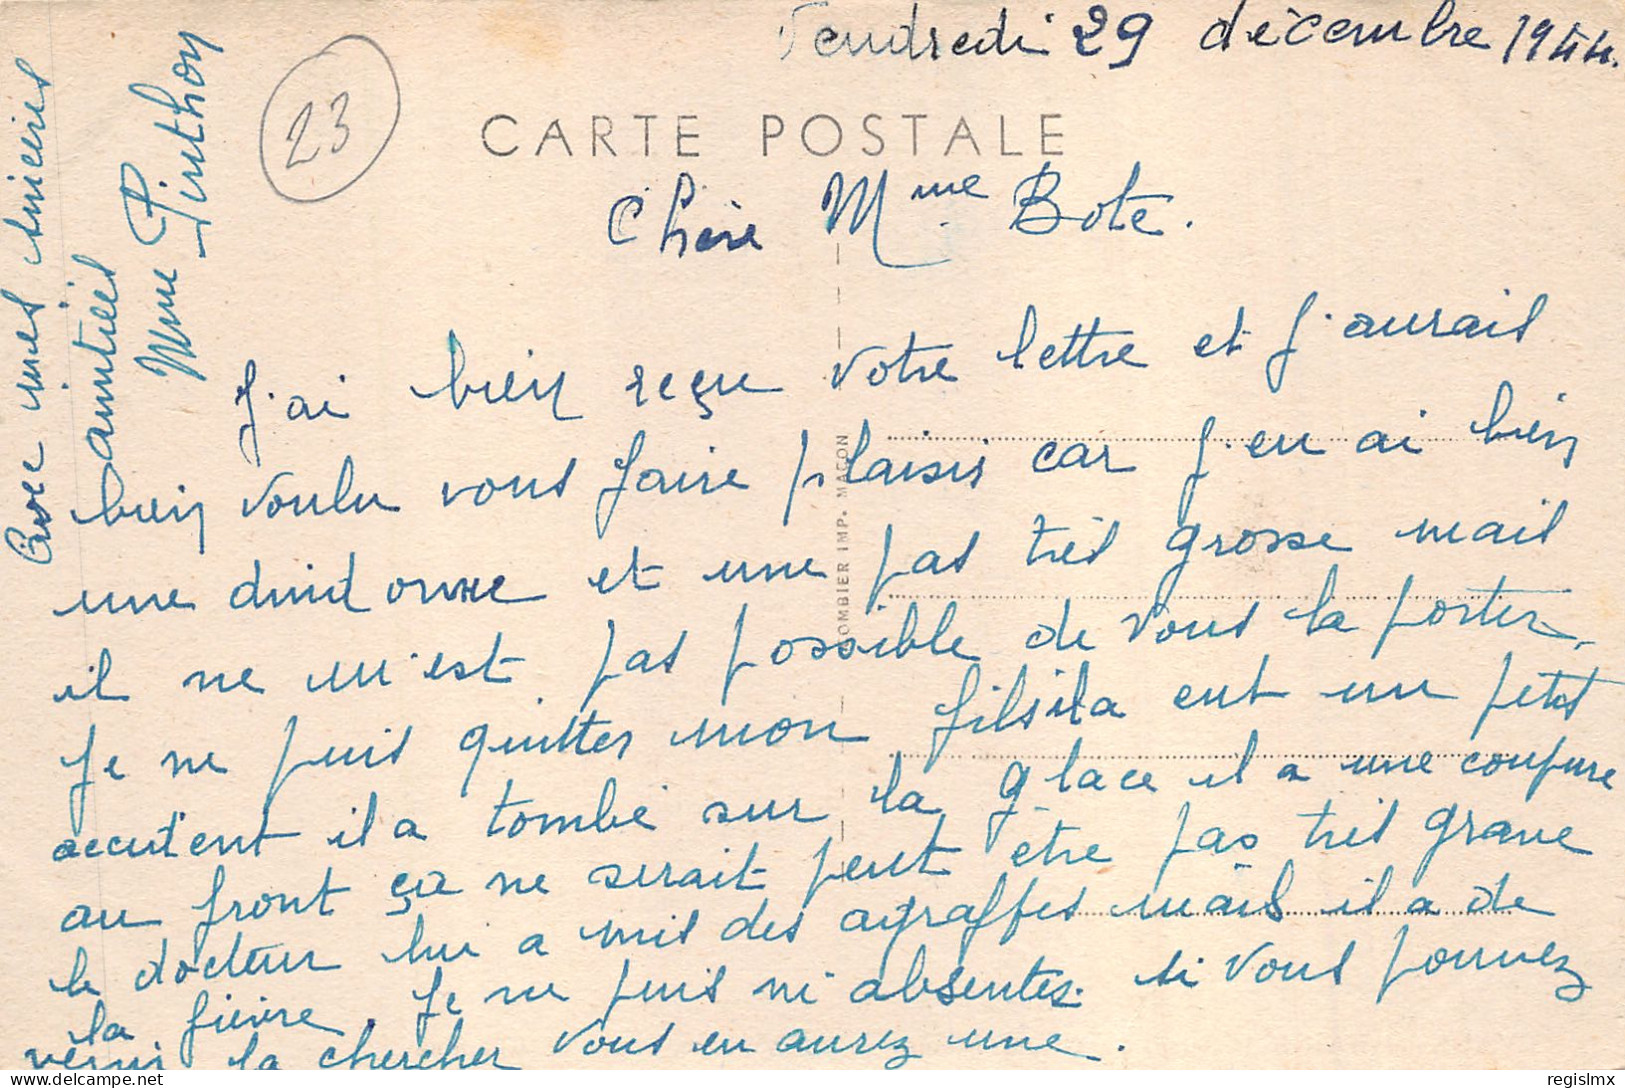 Vendredi 29 décembre 1944.
23
CARTE POSTALE
Chère Mme Bote.
J'ai bien reçu votre lettre et j'aurais
bien voulu vous faire plaisir car j'en ai bien
une et une pas très grosse mais
il ne m'est pas possible de vous la porter.
Je ne puis quitter mon fils il a eut un petit
accident il a tombé sur la glace il a une coupure
au front ça ne serait peut être pas très grave
le docteur lui a mis des agraffes mais il a de
la fièvre. Je ne puis m'absenter. si vous pouvez
venir la chercher vous en aurez une.
mes sincères
amitiés
Mme Pinthon
COMBIER IMP. MACON
regislmx